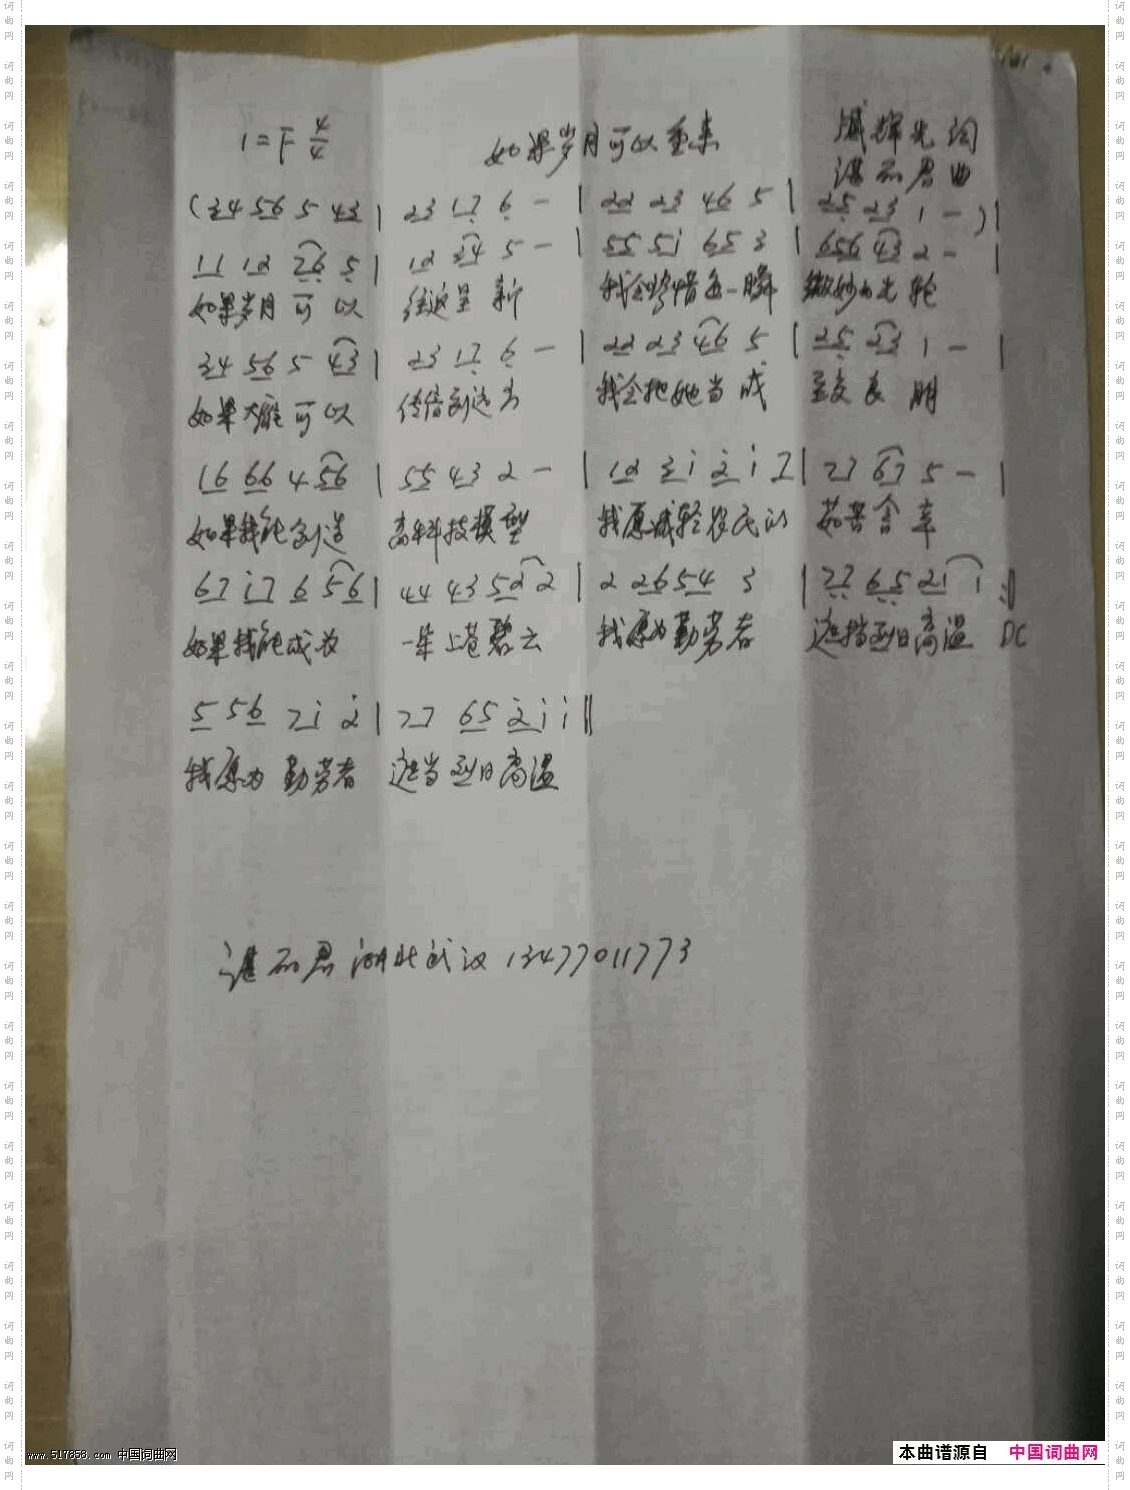 1=F 4/4
如果岁月可以重来
臧辉先词
谌西君曲
(34 56 5 43 | 23 17 6 - | 22 23 46 5 | 25 23 1 - ) |
11 12 26 5 | 12 34 5 - | 55 5i 65 3 | 656 43 2 - |
如果岁月可以 往返重新 我会珍惜每一瞬 微妙的光轮
34 56 5 43 | 23 17 6 - | 22 23 46 5 | 25 23 1 - |
如果大雁可以 传信到远方 我会把她当成 至交良朋
16 66 4 56 | 55 43 2 - | 12 3i 2 i 7 | 77 67 5 - |
如果我能创造 高科技模型 我愿减轻农民的 茹苦含辛
67 i7 6 56 | 44 43 52 2 | 2 2654 3 | 77 65 21 1 :||
如果我能成为 一朵上苍碧云 我愿为勤劳者 遮挡烈日高温 DC
5 56 7i 2 | 77 65 2i i ||
我愿为勤劳者 遮当烈日高温
湖北武汉 13477011773
www.517858.com 中国词曲网
本曲谱源自 中国词曲网